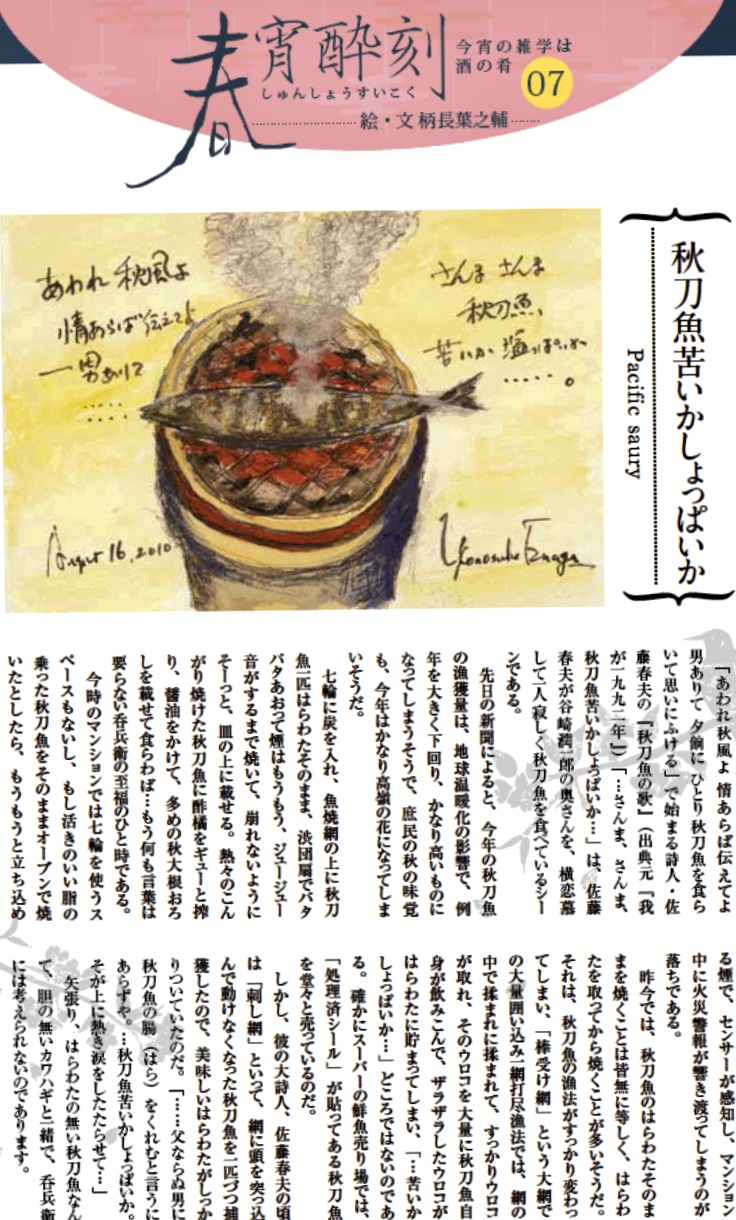 春宵酔刻
しゅんしょうすいこく
今宵の雑学は
酒の肴
07
絵・文 柄長葉之輔
秋刀魚苦いかしょっぱいか
Pacific saury
さんま さんま
秋刀魚、
苦いか 塩っぱいか
……。
あわれ 秋風よ
情あらば伝えてよ
一男ありて
……
……
August 16, 2010
「あわれ秋風よ 情あらば伝えてよ
男ありて 夕餉に ひとり 秋刀魚を食ら
いて思いにふける」で始まる詩人・佐
藤春夫の『秋刀魚の歌』(出典元『我
が一九二二年』)「…さんま、さんま、
秋刀魚苦いかしょっぱいか…」は、佐藤
春夫が谷崎潤一郎の奥さんを、横恋慕
して一人寂しく秋刀魚を食べているシー
ンである。
先日の新聞によると、今年の秋刀魚
の漁獲量は、地球温暖化の影響で、例
年を大きく下回り、かなり高いものに
なってしまうそうで、庶民の秋の味覚
も、今年はかなり高嶺の花になってしま
いそうだ。
七輪に炭を入れ、魚焼網の上に秋刀
魚一匹はらわたそのまま、渋団扇でバタ
バタあおって煙はもうもう、ジュージュー
音がするまで焼いて、崩れないように
そーっと、皿の上に載せる。熱々のこん
がり焼けた秋刀魚に酢橘をギューと搾
り、醤油をかけて、多めの秋大根おろ
しを載せて食らわば…もう何も言葉は
要らない呑兵衛の至福のひと時である。
今時のマンションでは七輪を使うス
ペースもないし、もし活きのいい脂の
乗った秋刀魚をそのままオーブンで焼
いたとしたら、もうもうと立ち込め
る煙で、センサーが感知し、マンション
中に火災警報が響き渡ってしまうのが
落ちである。
昨今では、秋刀魚のはらわたそのま
まを焼くことは皆無に等しく、はらわ
たを取ってから焼くことが多いそうだ。
それは、秋刀魚の漁法がすっかり変わっ
てしまい、「棒受け網」という大網で
の大量囲い込み一網打尽漁法では、網の
中で揉まれに揉まれて、すっかりウロコ
が取れ、そのウロコを大量に秋刀魚自
身が飲みこんで、ザラザラしたウロコが
はらわたに貯まってしまい、「…苦いか
しょっぱいか…」どころではないのであ
る。確かにスーパーの鮮魚売り場では、
「処理済シール」が貼ってある秋刀魚
を堂々と売っているのだ。
しかし、彼の大詩人、佐藤春夫の頃
は「刺し網」といって、網に頭を突っ込
んで動けなくなった秋刀魚を一匹づつ捕
獲したので、美味しいはらわたがしっか
りついていたのだ。「……父ならぬ男に
秋刀魚の腸(はら)をくれむと言うに
あらずや。…秋刀魚苦いかしょっぱいか。
そが上に熱き涙をしたたらせて…」
矢張り、はらわたの無い秋刀魚なん
て、胆の無いカワハギと一緒で、呑兵衛
には考えられないのであります。